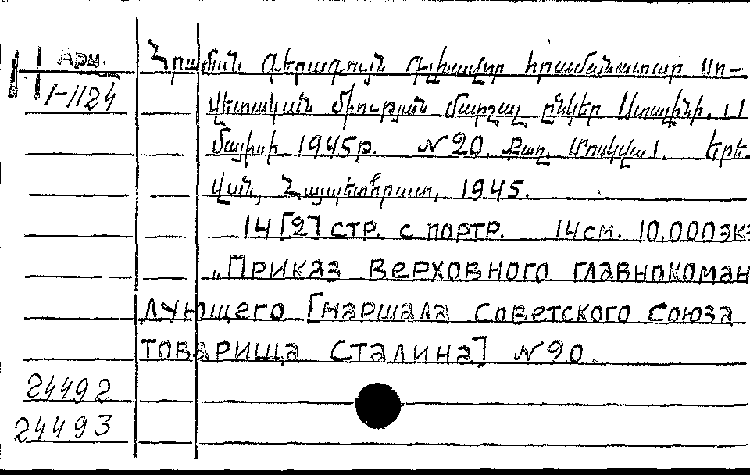 Арм. Հրաման գերագույն գլխավոր հրամանատար Սո-
1-1124 վետական Միության մարշալ ընկեր Ստալինի. 1
մայիսի 1945թ. N20. Քաղ. Մոսկվա. Երե-
վան, Հայպետհրատ, 1945.
14 [2] стр. с портр. 14 см. 10.000 экз
„Приказ верховного главнокоман
дующего [маршала Советского Союза
товарища Сталина] N90.
24492
24493